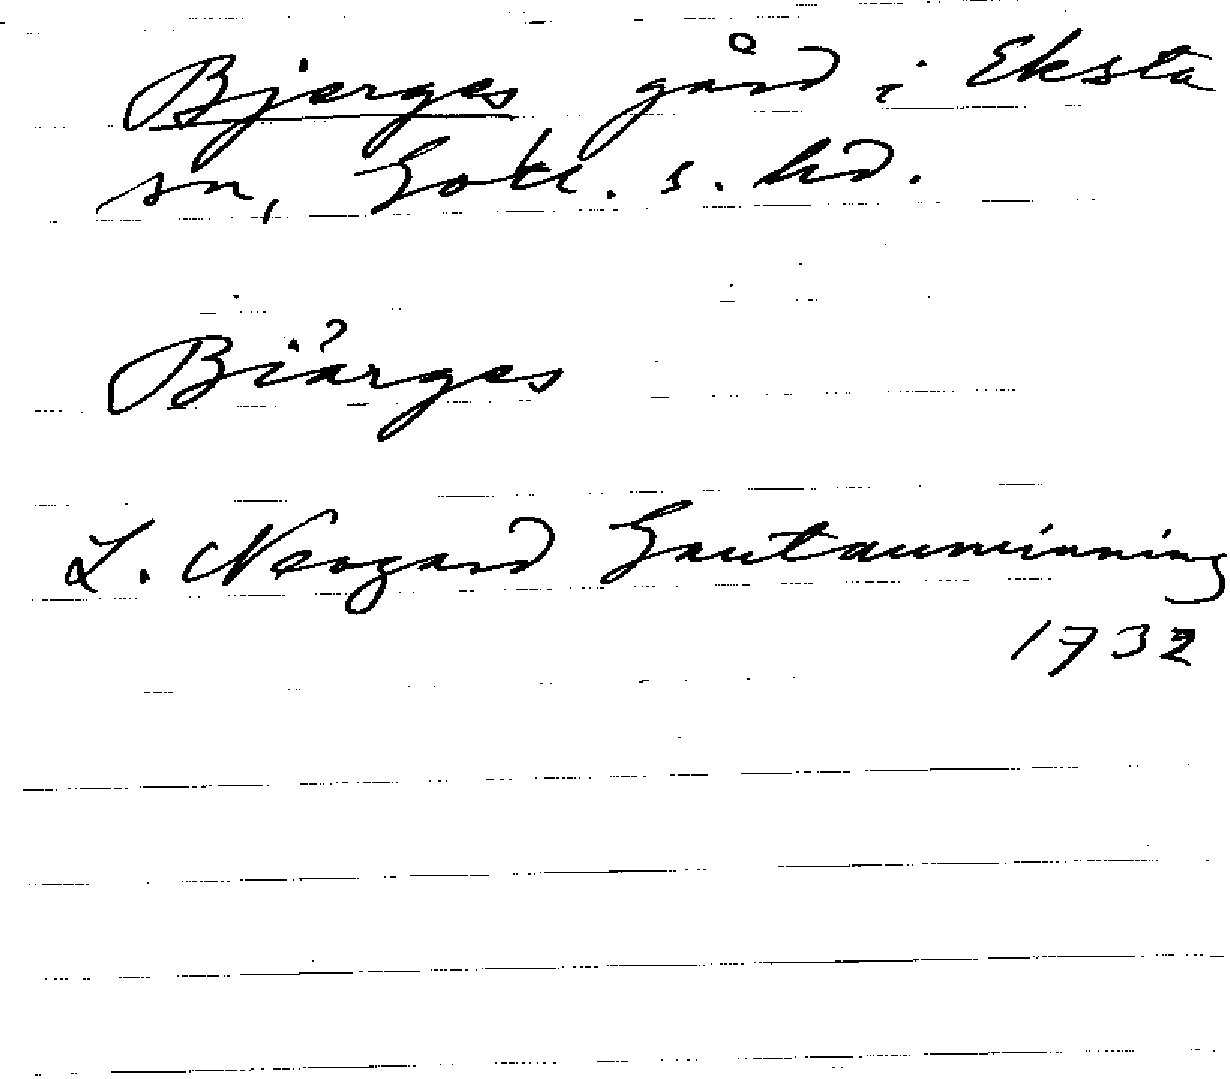 Bjerges gård i Eksta
sn, Gotl. s. hd.
Biärges
L. Neogard Gautauminning
1732